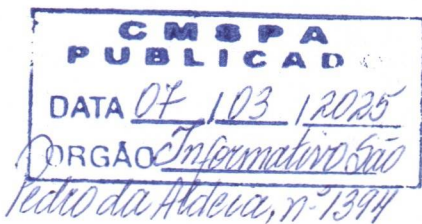 CMSPA
PUBLICADO
DATA 07 / 03 / 2025
ORGÃO Informativo São
Pedro da Aldeia, nº 1394